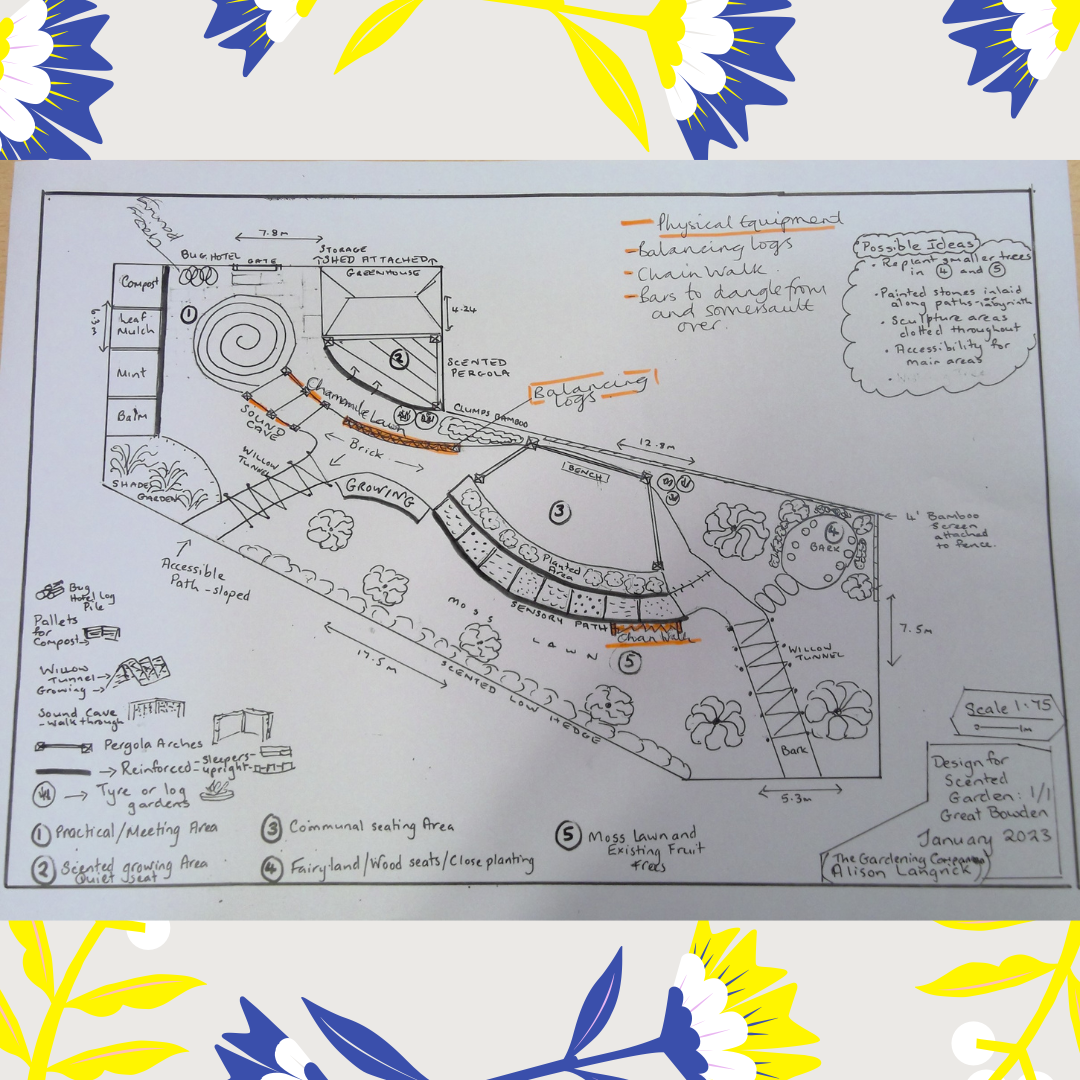 Crazy
paving
7.8m
BUG HOTEL
GATE
STORAGE
SHED ATTACHED
GREENHOUSE
4.24
Compost
Leaf
Mulch
Mint
Balm
3.9
1
2
SCENTED
PERGOLA
Chamomile Lawn
SOUND
CAVE
Brick
WILLOW
TUNNEL
SHADE
GARDEN
GROWING
Accessible
Path - sloped
CLUMPS BAMBOO
Balancing
logs
12.8m
BENCH
3
Planted
Area
SENSORY PATH
Chain Walk
MOSS
LAWN
5
17.5m
SCENTED LOW HEDGE
4
BARK
4' Bamboo
Screen
attached
to fence.
7.5m
WILLOW
TUNNEL
Bark
5.3m
Physical Equipment
- Balancing logs
- Chain Walk.
- Bars to dangle from
and somersault
over.
Possible Ideas
• Replant smaller trees
in 4 and 5
• Painted stones inlaid
along paths - labyrinth
• Sculpture areas
dotted throughout
• Accessibility for
main areas
Bug
Hotel Log
Pile
Pallets
for
Compost
Willow
Tunnel
Growing
Sound Cave
- walk through
Pergola Arches
Reinforced - sleepers -
upright -
Tyre or log
gardens
1 Practical/Meeting Area
2 Scented growing Area
Quiet seat
3 Communal seating Area
4 Fairyland/Wood seats/Close planting
5 Moss lawn and
Existing Fruit
trees
Scale 1:75
1m
Design for
Scented
Garden: 1/1
Great Bowden
January 2023
The Gardening Company
Alison Langrick